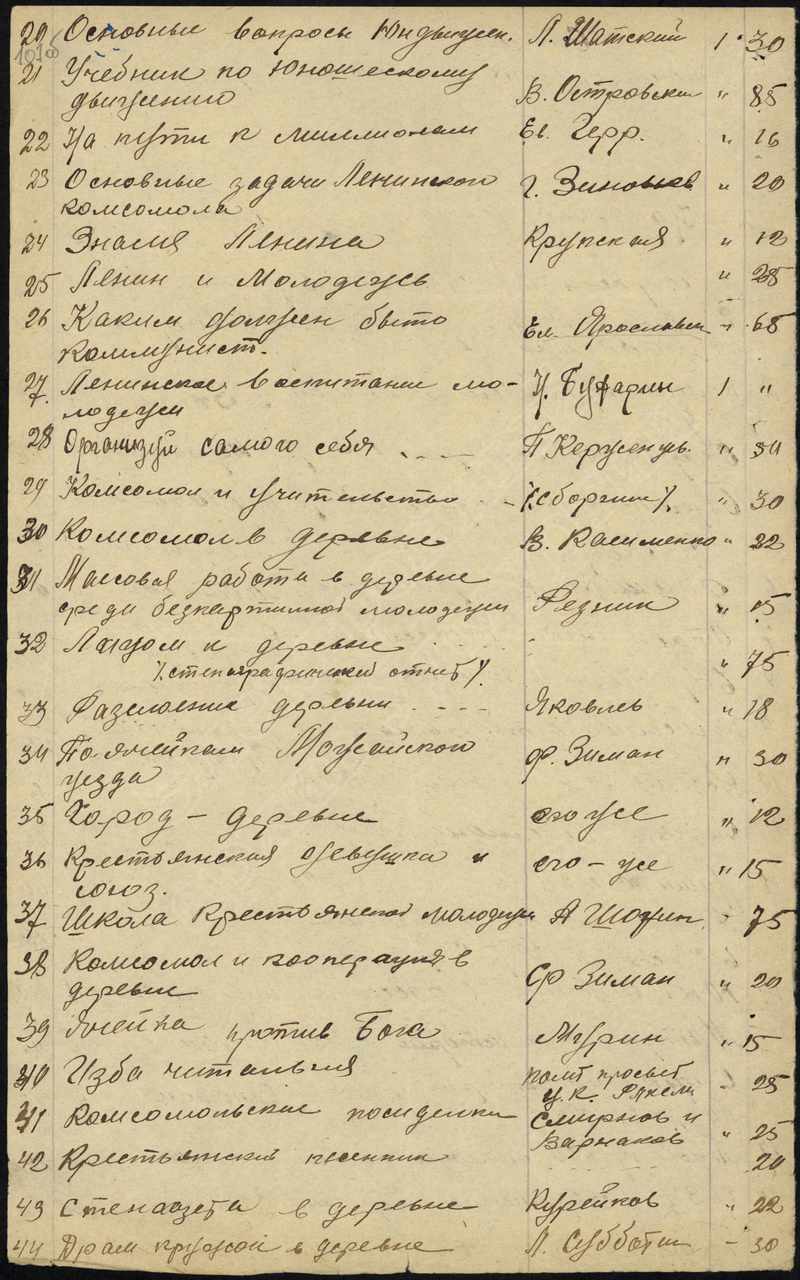 20 Основные вопросы Юндвижен. Л. Шатский 1 30
101об
21 Учебник по Юношескому
движению В. Островский " 85
22 На пути к миллионам Ев. Герр. " 16
23 Основные задачи Ленинского Г. Зиновьев " 20
комсомола
24 Знамя Ленина Крупская " 12
25 Ленин и Молодежь " 28
26 Каким должен быть
коммунист. Ем. Ярославск " 68
27. Ленинское воспитание мо- Н. Бухарин 1 "
лодежи
28 Организуй самого себя П Керженцев. "
29 Комсомол и учительство - /.сборник/. " 30
30 Комсомол в деревне В. Касименко " 22
31 Массовая работа в деревне
среди безпартийной молодежи Резник " 15
32 Лицом к деревне
/.стенографический отчет/. " 75
33 Разслоение деревни Яковлев " 18
34 По ячейкам Можайского Ф. Зиман " 30
уезда
35 Город - деревне его же " 12
36 Крестьянская девушка и его - же " 15
союз.
37 Школа Крестьянской молодежи А Шохин " 75
38 Комсомол и кооперация в
деревне Ф Зиман " 20
39 Ячейка против Бога Мурин " 15
40 Изба читальня полит просвет
Ц.К. " 25
41 Комсомольские посиделки Смирнов и
Варнаков " 25
42 Крестьянский песенник 20
43 Стенгазета в деревне Курейков " 22
44 Драм кружой в деревне Л. Субботин - 30